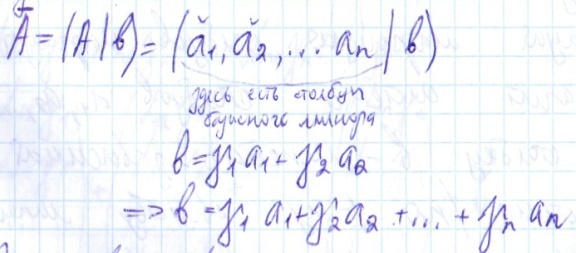 Ā = (A | b) = (ǎ₁, ǎ₂, ... aₙ | b)
здесь есть столбцы
базисного минора
b = γ₁ a₁ + γ₂ a₂
=> b = γ₁ a₁ + γ₂ a₂ + ... + γₙ aₙ